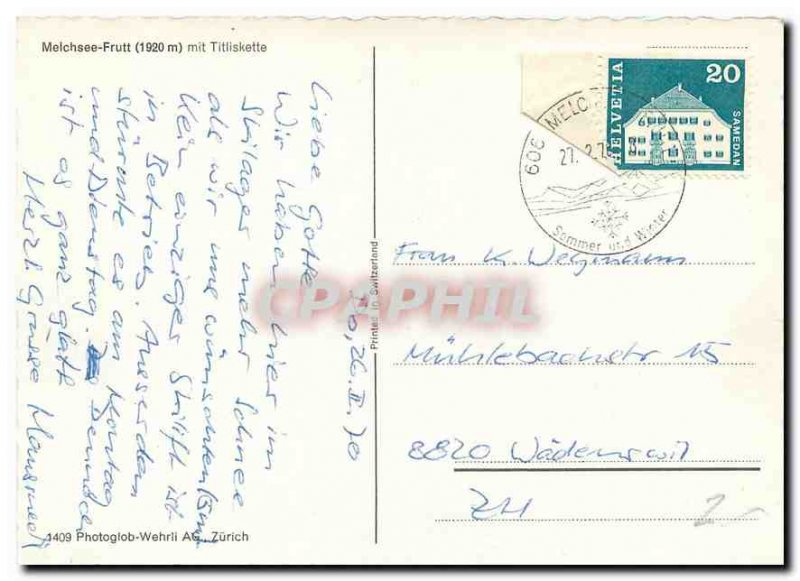 Melchsee-Frutt (1920 m) mit Titliskette
Liebe Gotte
Do, 26.II.70
Wir haben hier im
Skilager mehr Schnee
als wir uns wünschten
Kein einziger Skilift ist
in Betrieb. Ausserdem
stürmte es am Montag
und Dienstag. Dennoch
ist es ganz glatt
Herzl. Grüsse
1409 Photoglob-Wehrli AG, Zürich
Printed in Switzerland
HELVETIA
20
SAMEDAN
606 MELC
27. 2.70
Sommer und Winter
Frau K. Wegmann
Mühlebachstr 15
8820 Wädenswil
ZH
CPAPHIL